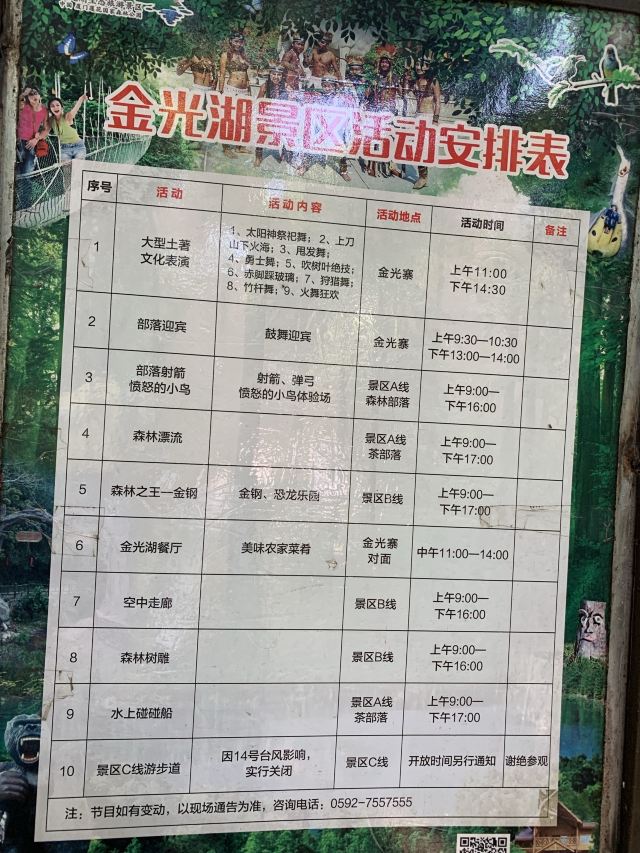 中国厦门莲花国家森林公园
金光湖景区活动安排表
序号 活动 活动内容 活动地点 活动时间 备注
1 大型土著
文化表演
1、太阳神祭祀舞；2、上刀
山下火海；3、甩发舞；
4、勇士舞；5、吹树叶绝技；
6、赤脚踩玻璃；7、狩猎舞；
8、竹杆舞；9、火舞狂欢
金光寨
上午11:00
下午14:30
2 部落迎宾 鼓舞迎宾 金光寨
上午9:30—10:30
下午13:00—14:00
3 部落射箭
愤怒的小鸟
射箭、弹弓
愤怒的小鸟体验场
景区A线
森林部落
上午9:00—
下午16:00
4 森林漂流
景区A线
茶部落
上午9:00—
下午17:00
5 森林之王—金钢 金钢、恐龙乐园 景区B线
上午9:00—
下午17:00
6 金光湖餐厅 美味农家菜肴
金光寨
对面
中午11:00—14:00
7 空中走廊 景区B线
上午9:00—
下午16:00
8 森林树雕 景区B线
上午9:00—
下午16:00
9 水上碰碰船
景区A线
茶部落
上午9:00—
下午17:00
10 景区C线游步道
因14号台风影响，
实行关闭
景区C线 开放时间另行通知 谢绝参观
注：节目如有变动，以现场通告为准，咨询电话：0592-7557555